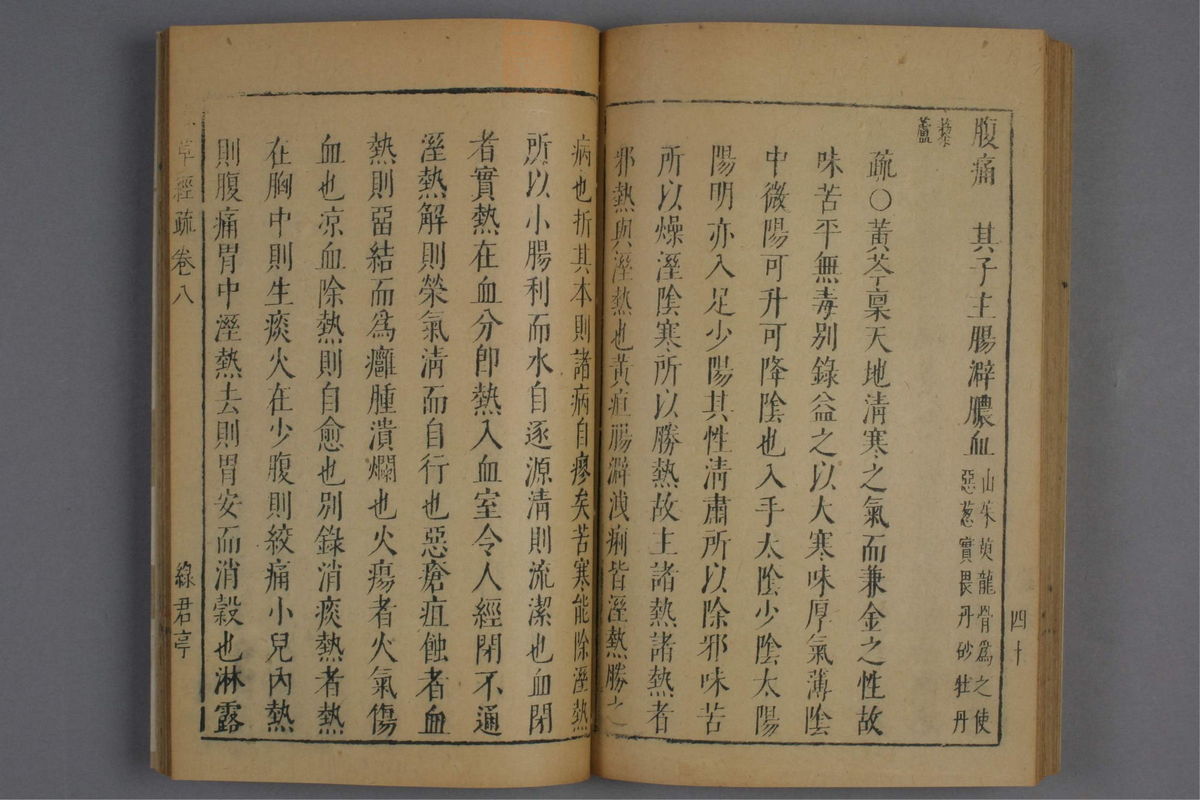 腹痛　其子主腸澼膿血山茱萸龍骨爲之使
惡葱實畏丹砂牡丹
藜
蘆
疏〇黃芩稟天地清寒之氣而兼金之性故
味苦平無毒別錄益之以大寒味厚氣薄陰
中微陽可升可降陰也入手太陰少陰太陽
陽明亦入足少陽其性清肅所以除邪味苦
所以燥溼陰寒所以勝熱故主諸熱諸熱者
邪熱與溼熱也黃疸腸澼洩痢皆溼熱勝之
四十
病也折其本則諸病自瘳矣苦寒能除溼熱
所以小腸利而水自逐源清則流潔也血閉
者實熱在血分卽熱入血室令人經閉不通
溼熱解則榮氣清而自行也惡瘡疽蝕者血
熱則畱結而爲癰腫潰爛也火瘍者火氣傷
血也凉血除熱則自愈也別錄消痰熱者熱
在胸中則生痰火在少腹則絞痛小兒內熱
則腹痛胃中溼熱去則胃安而消穀也淋露
草經疏　卷八　綠君亭